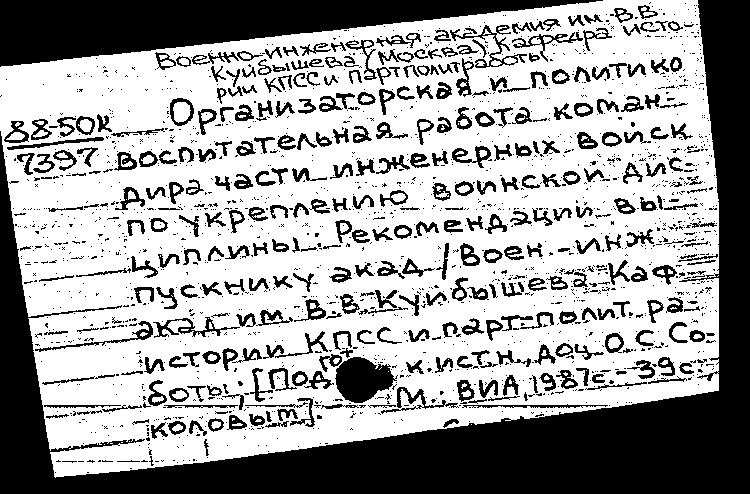 Военно-инженерная академия им. В.В.
Куйбышева (Москва) Кафедра исто-
рии КПСС и партполитработы.
Организаторская и политико
88-50к
7397
воспитательная работа коман-
дира части инженерных войск
по укреплению воинской дис-
циплины: Рекомендации вы-
пускнику акад / Воен.-инж.
акад им. В.В. Куйбышева. Каф
истории КПСС и парт-полит. ра-
боты; [Подгот к.ист.н., доц О.С. Со-
коловым]. М.: ВИА, 1987с.- 39с.,